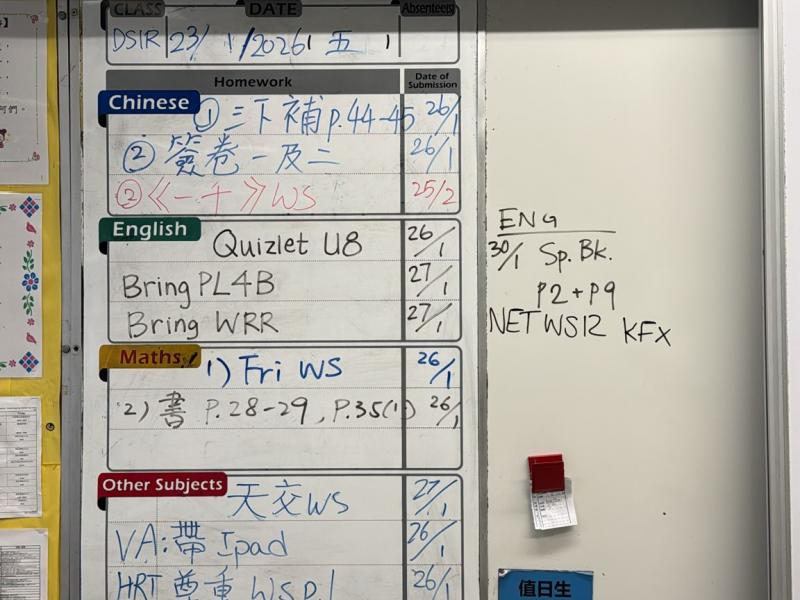 CLASS DATE Absentee(s)
DSIR 23/1/2026 五
Homework Date of Submission
Chinese ① 三下補 p.44-45 26/1
② 簽卷一及二 26/1
② 《一千》WS 25/2
English Quizlet U8 26/1
Bring PL4B 27/1
Bring WRR 27/1
Maths 1) Fri WS 26/1
2) 書 P.28-29, P.35(1) 26/1
Other Subjects 天交WS 27/1
VA: 帶 Ipad 26/1
HRT 尊重 WS p.1 26/1
ENG
30/1 Sp. Bk.
P2 + P9
NET WS12 KFX
值日生